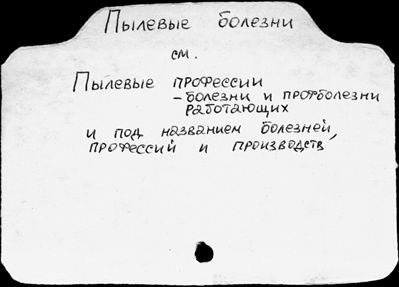 Пылевые болезни
см.
Пылевые профессии
- болезни и профболезни
работающих
и под названием болезней,
профессий и производств